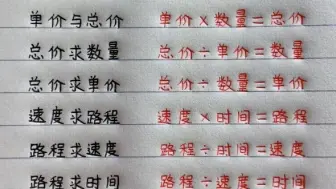 单价与总价 单价×数量=总价
总价求数量 总价÷单价=数量
总价求单价 总价÷数量=单价
速度求路程 速度×时间=路程
路程求速度 路程÷时间=速度
路程求时间 路程÷速度=时间